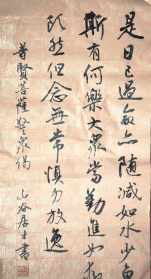 是日已過命亦随减如水少魚
斯有何樂大衆當勤進如救
頭然但念無常慎勿放逸
普賢菩薩警衆偈 山谷居士書